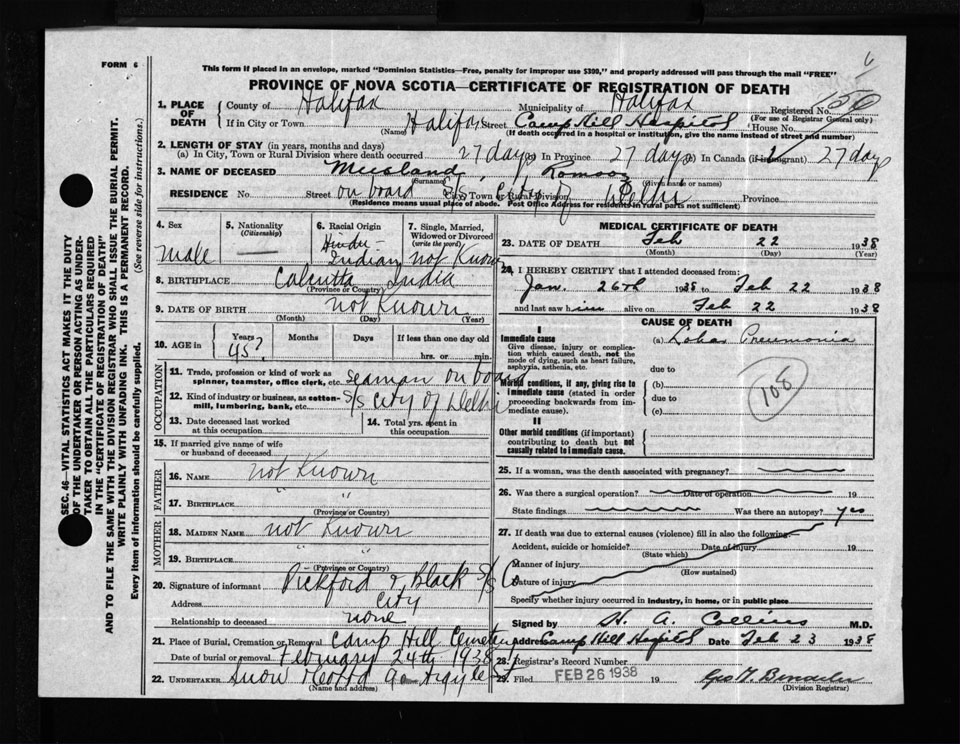 FORM 6
6
This form if placed in an envelope, marked "Dominion Statistics—Free, penalty for improper use $300," and properly addressed will pass through the mail "FREE"
PROVINCE OF NOVA SCOTIA—CERTIFICATE OF REGISTRATION OF DEATH
1. PLACE OF DEATH
County of Halifax Municipality of Halifax Registered No. 156
(For use of Registrar General only)
If in City or Town Halifax Street Camp Hill Hospital House No.
(Name) (If death occurred in a hospital or institution, give the name instead of street and number)
2. LENGTH OF STAY (in years, months and days)
(a) In City, Town or Rural Division where death occurred 27 days (b) In Province 27 days (c) In Canada (if immigrant) 27 days
3. NAME OF DECEASED
(Surname) (Given name or names)
RESIDENCE No. Street on board S/s City of Delhi City Town or Rural Division Province
(Residence means usual place of abode. Post Office Address for residents in rural parts not sufficient)
4. Sex
Male
5. Nationality
(Citizenship)
6. Racial Origin
Hindu-
Indian
7. Single, Married, Widowed or Divorced
(write the word)
not Known
8. BIRTHPLACE Calcutta India
(Province or Country)
9. DATE OF BIRTH not Known
(Month) (Day) (Year)
10. AGE in Years Months Days If less than one day old
45? hrs. or min.
OCCUPATION
11. Trade, profession or kind of work as spinner, teamster, office clerk, etc. seaman on board
12. Kind of industry or business, as cotton-mill, lumbering, bank, etc. S/s City of Delhi
13. Date deceased last worked at this occupation
14. Total yrs. spent in this occupation
15. If married give name of wife or husband of deceased
FATHER
16. NAME not Known
17. BIRTHPLACE " "
(Province or Country)
MOTHER
18. MAIDEN NAME not Known
19. BIRTHPLACE " "
(Province or Country)
20. Signature of informant Pickford & Black S/S Co
Address City
Relationship to deceased none
21. Place of Burial, Cremation or Removal Camp Hill Cemetery
Date of burial or removal February 24th 1938
22. UNDERTAKER Snow Argyle St
(Name and address)
MEDICAL CERTIFICATE OF DEATH
23. DATE OF DEATH Feb 22 1938
(Month) (Day) (Year)
24. I HEREBY CERTIFY that I attended deceased from:
Jan. 26th 1938 to Feb 22 1938
and last saw him alive on Feb 22 1938
CAUSE OF DEATH
I
Immediate cause
Give disease, injury or complication which caused death, not the mode of dying, such as heart failure, asphyxia, asthenia, etc.
(a) Lobar Pneumonia
due to
Morbid conditions, if any, giving rise to immediate cause (stated in order proceeding backwards from immediate cause).
(b)
due to
(c)
108
II
Other morbid conditions (if important) contributing to death but not causally related to immediate cause.
25. If a woman, was the death associated with pregnancy?
26. Was there a surgical operation? Date of operation 19
State findings Was there an autopsy? yes
27. If death was due to external causes (violence) fill in also the following:—
Accident, suicide or homicide? Date of injury 19
(State which)
Manner of injury
(How sustained)
Nature of injury
Specify whether injury occurred in industry, in home, or in public place
Signed by H. A. Collins M.D.
Address Camp Hill Hospital Date Feb 23 1938
28. Registrar's Record Number
29. Filed FEB 26 1938 19
(Division Registrar)
SEC. 46—VITAL STATISTICS ACT MAKES IT THE DUTY
OF THE UNDERTAKER OR PERSON ACTING AS UNDER-
TAKER TO OBTAIN ALL THE PARTICULARS REQUIRED
IN THE "CERTIFICATE OF REGISTRATION OF DEATH"
AND TO FILE THE SAME WITH THE DIVISION REGISTRAR WHO SHALL ISSUE THE BURIAL PERMIT.
WRITE PLAINLY WITH UNFADING INK. THIS IS A PERMANENT RECORD.
Every item of information should be carefully supplied. (See reverse side for instructions.)